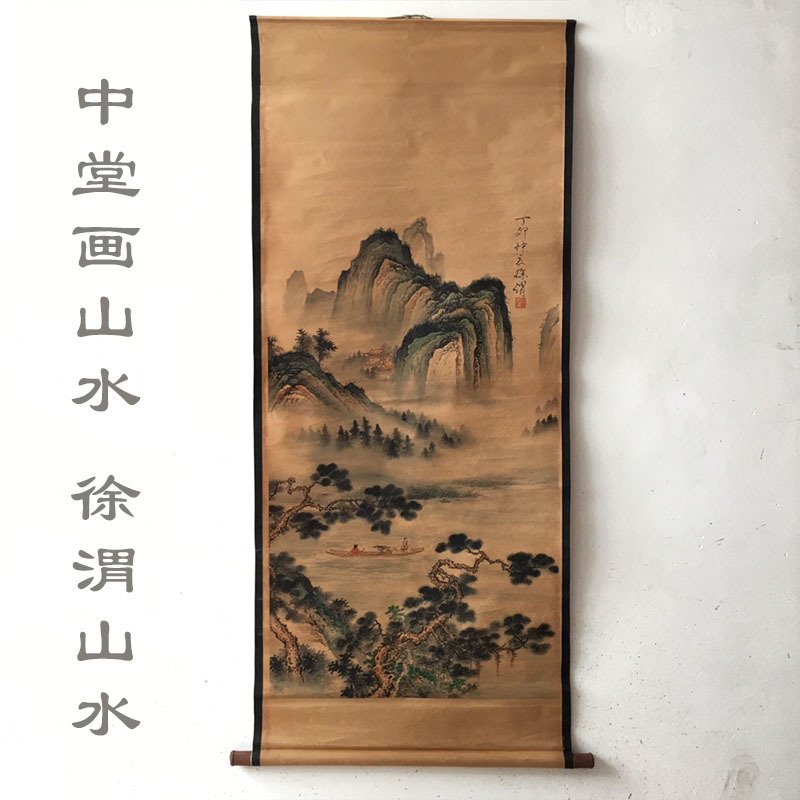 中堂画山水 徐渭山水
丁卯仲夏徐渭